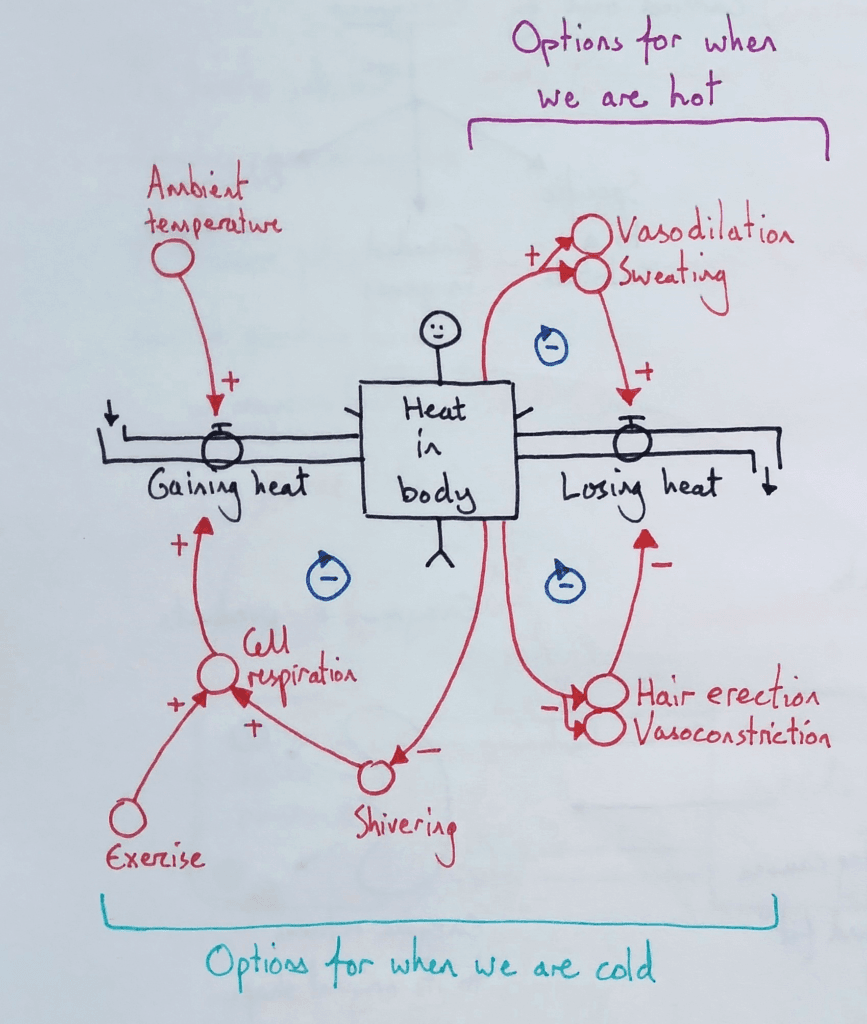 Options for when
we are hot
Ambient
temperature
Vasodilation
+
Sweating
-
+
+
Heat
in
body
Gaining heat
Losing heat
+
-
-
-
Cell
respiration
+
+
-
-
Hair erection
Vasoconstriction
Shivering
Exercise
Options for when we are cold